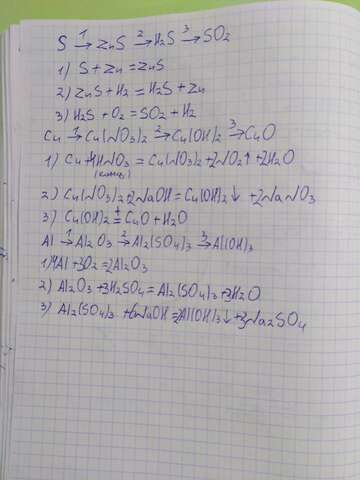 S 1→ ZnS 2→ H2S 3→ SO2
1) S + Zn = ZnS
2) ZnS + H2 = H2S + Zn
3) H2S + O2 = SO2 + H2
Cu 1→ Cu(NO3)2 2→ Cu(OH)2 3→ CuO
1) Cu + 4HNO3 = Cu(NO3)2 + 2NO2↑ + 2H2O
(конц)
2) Cu(NO3)2 + 2NaOH = Cu(OH)2↓ + 2NaNO3
3) Cu(OH)2 t= CuO + H2O
Al 1→ Al2O3 2→ Al2(SO4)3 3→ Al(OH)3
1) 4Al + 3O2 = 2Al2O3
2) Al2O3 + 3H2SO4 = Al2(SO4)3 + 3H2O
3) Al2(SO4)3 + 6NaOH = 2Al(OH)3↓ + 3Na2SO4